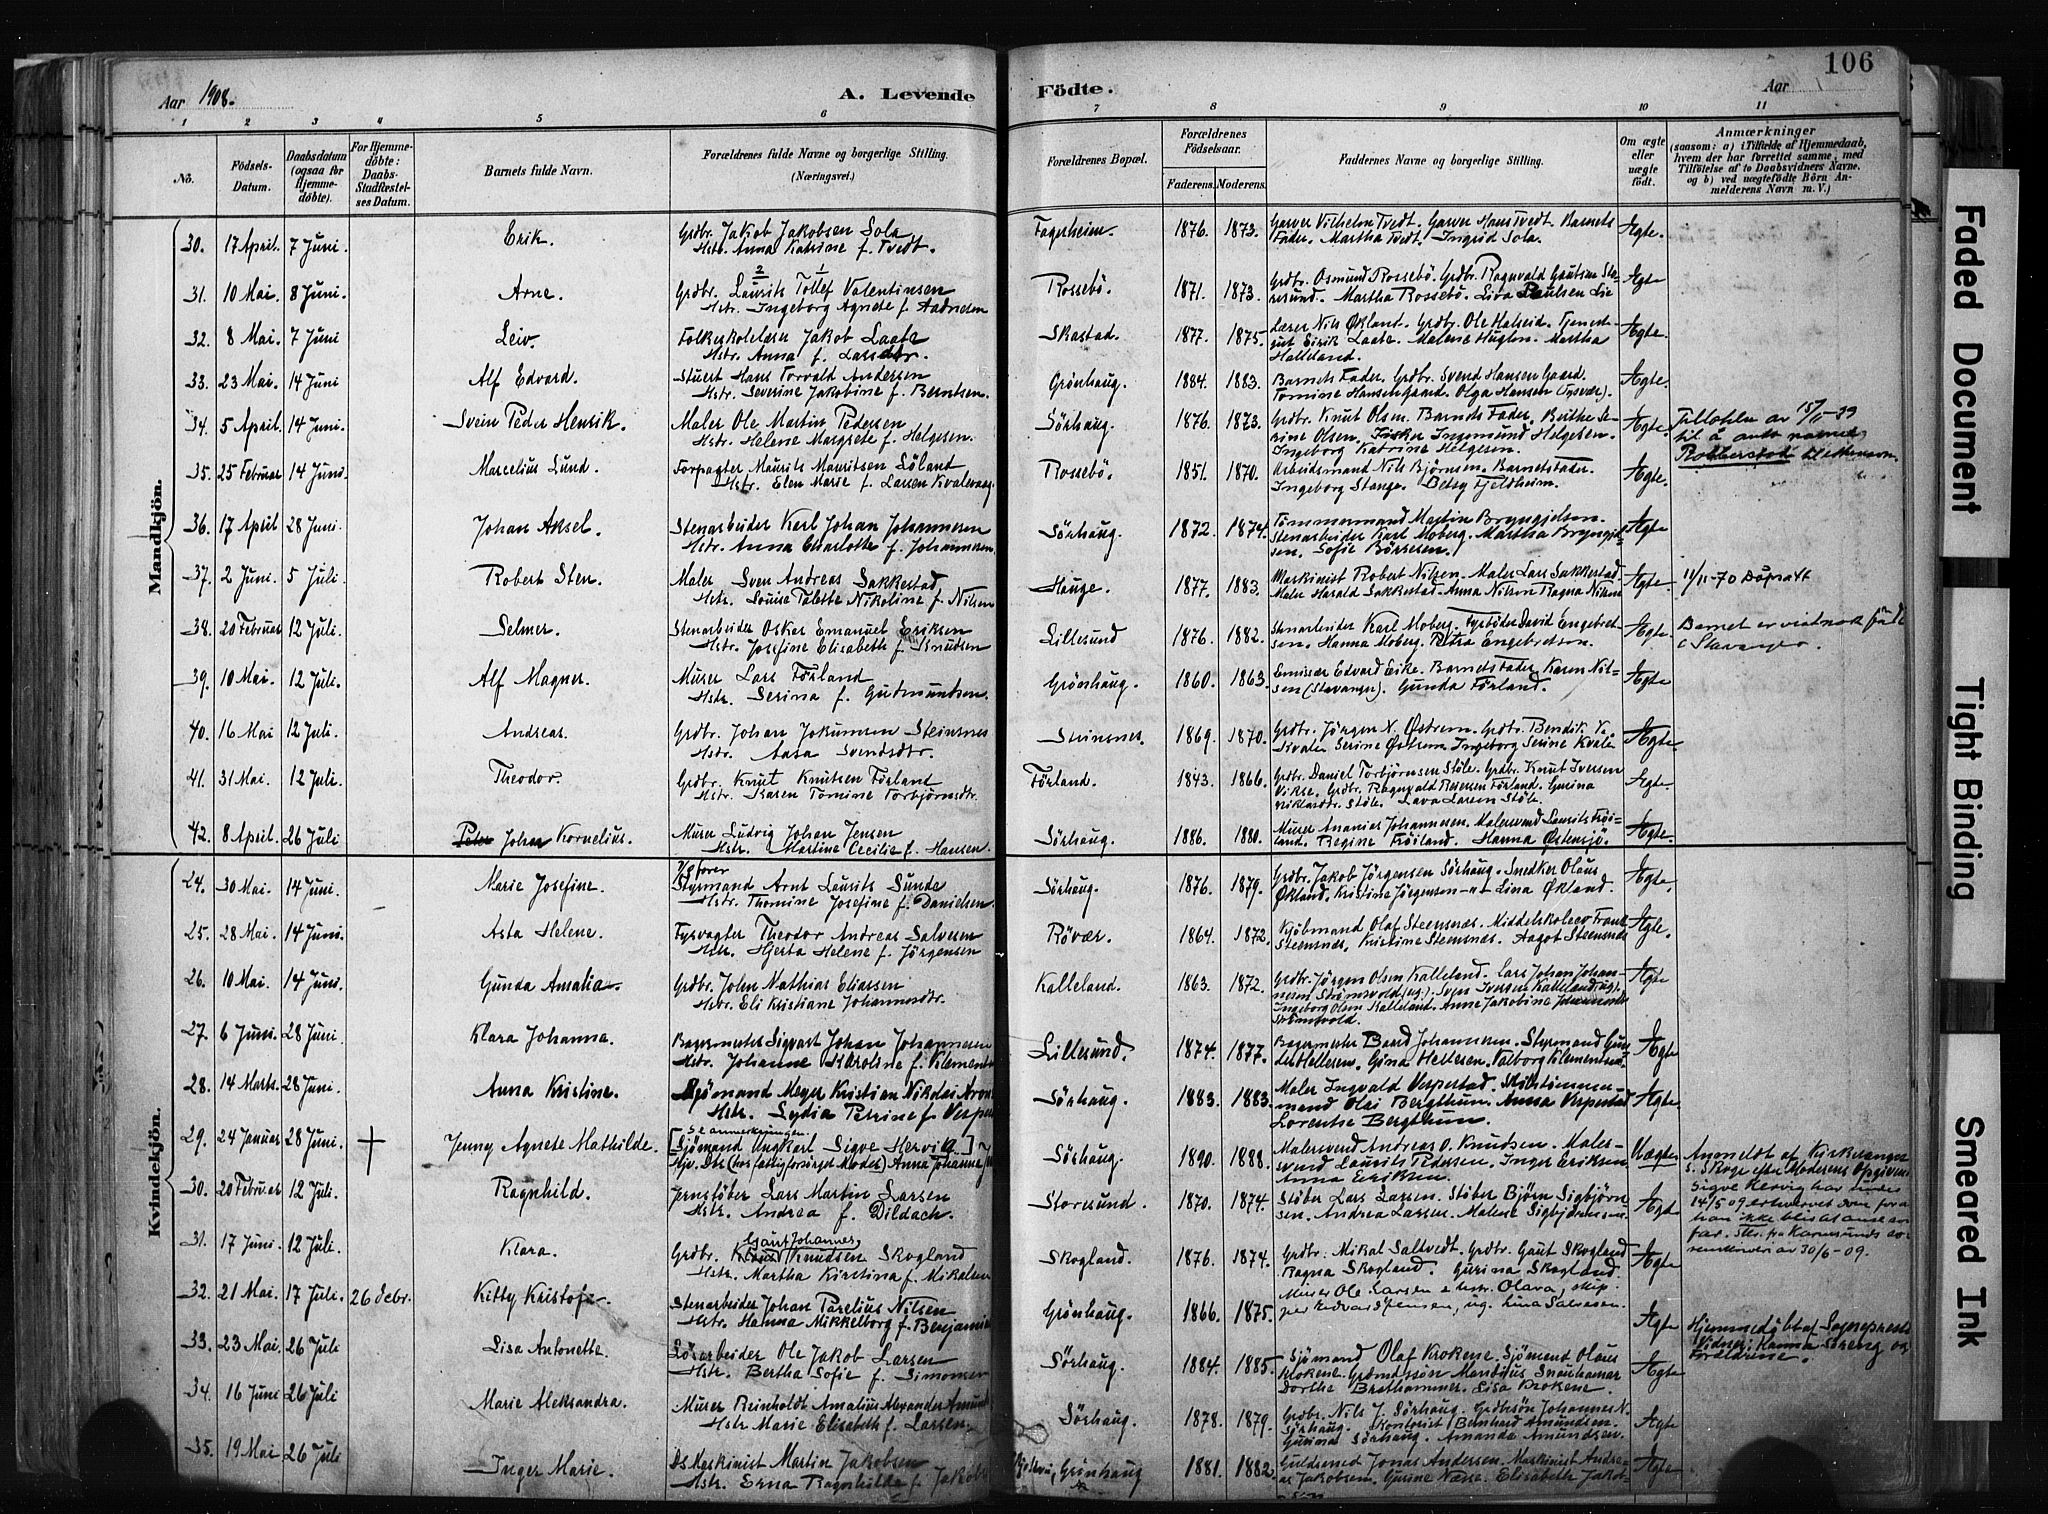 106
Aar 1908.
A. Levende Födte.
Aar
1 2 3 4 5 6 7 8 9 10 11
No.
Födsels-Datum.
Daabsdatum (ogsaa for Hjemme-döbte).
For Hjemme-döbte: Daabs-Stadfæstel-ses Datum.
Barnets fulde Navn.
Forældrenes fulde Navne og borgerlige Stilling. (Næringsvei.)
Forældrenes Bopæl.
Forældrenes Födselsaar.
Faderens. Moderens.
Faddernes Navne og borgerlige Stilling.
Om ægte eller uægte födt.
Anmærkninger
(saasom: a) i Tilfælde af Hjemmedaab, hvem der har forrettet samme, med Tilföielse af to Daabsvidners Navne, og b) ved uægtefödte Börn An-melderens Navn m. V.)
Mandkjön.
30. 17 April. 7 Juni. Erik. Grdbr. Jakob Jakobsen Sola Hstr. Anna Katrine f. Tvedt. Fagerheim. 1876. 1873. Garver Vilhelm Tvedt. Garver Hans Tvedt. Barnets Fader. Martha Tvedt. Ingrid Sola. Ægte.
31. 10 Mai. 8 Juni. Arne. Grdbr. Laurits Tollef Valentinsen Hstr. Ingeborg Agnete f. Aadnesen Rossebö. 1871. 1873. Grdbr. Osmund Rossebö. Grdbr. Ragnvald Gautsen Martha Rossebö. Ægte
32. 8 Mai. 7 Juni Leiv. Folkeskolelærer Jakob Laate Hstr. Anna f. Larsdtr. Skastad. 1877. 1875. Lærer Nils Økland. Grdbr. Ole Halseid. Eirik Laate. Malene Huglen. Martha Halleland. Ægte.
33. 23 Mai. 14 Juni Alf Edvard. Stuert Hans Torvald Andersen Hstr. Severine Jakobine f. Berntsen. Grönhaug. 1884. 1883. Barnets Fader. Grdbr. Svend Hansen Gaard. Tomine Hansen Gaard. Olga Hansen (Tysvær). Ægte.
34. 5 April. 14 Juni. Svein Peder Henrik. Maler Ole Martin Pedersen Hstr. Helene Margrete f. Helgesen. Sörhaug. 1876. 1873. Grdbr. Knut Olsen. Barnets Fader. Berthe Serine Olsen. Fisker Ingemund Helgesen. Ingeborg Katrine Helgesen. Ægte.
35. 25 Februar 14 Juni. Marcelius Lund. Forpagter Maurits Mauritsen Löland Hstr. Elen Marie f. Larsen Kvalevaag. Rossebö. 1851. 1870. Arbeidsmand Nils Björnsen. Barnets Fader. Ingeborg Stange. Betsy Fjeldheim. Ægte.
36. 17 April 28 Juni. Johan Aksel. Stenarbeider Karl Johan Johannesen Hstr. Anna Charlotte f. Johannesen. Sörhaug. 1872. 1874. Tömmermand Martin Bryngjelsen. Stenarbeider Karl Moberg. Martha Bryngjelsen. Sofie Börresen. Ægte
37. 2 Juni. 5 Juli. Robert Sten. Maler Sven Andreas Sakkestad Hstr. Louise Talette Nikoline f. Nilsen Hauge. 1877. 1883. Maskinist Robert Nilsen. Maler Lars Sakkestad. Maler Harald Sakkestad. Anna Nilsen Ragna Nilsen Ægte. 11/11-70 Döpsatt
38. 20 Februar 12 Juli. Selmer. Stenarbeider Oskar Emanuel Eriksen Hstr. Josefine Elisabeth f. Knudsen Lillesund 1876. 1882. Stenarbeider Karl Moberg. Fyrböder David Engebretsen. Hanna Moberg. Petra Engebretsen. Ægte. Barnet er visstnok född i Stavanger.
39. 10 Mai. 12 Juli. Alf Magner. Murer Lars Förland Hstr. Serina f. Gudmundsen. Grönhaug. 1860. 1863. Emissær Edvard Eike. Barnets Fader. Karen Nilsen (Stavanger). Gunda Förland. Ægte
40. 16 Mai 12 Juli. Andreas. Grdbr. Johan Jokumsen Steinsnes Hstr. Aasa Svendsdtr. Steinsnes. 1869. 1870. Grdbr. Jörgen N. Østrem. Grdbr. Bendik K. Kvale. Serine Østrem. Ingeborg Serine Kvale Ægte
41. 31 Mai. 12 Juli. Theodor. Grdbr. Knut Knutsen Förland Hstr. Karen Tomine Torbjörnsdtr. Förland. 1843. 1866. Grdbr. Daniel Torbjörnsen Stöle. Grdbr. Knut Iversen Vikse. Grdbr. Ragnvald Förland. Gurina Stöle. Lava Larsen Stöle. Ægte.
42. 8 April. 26 Juli Johan Kornelius. Murer Ludvig Johan Jensen Hstr. Martine Cecilie f. Hansen. Sörhaug. 1886. 1880. Murer Ananias Johannesen. Malersvend Laurits Fröiland. Regine Fröiland. Hanna Østensjö. Ægte
Kvindekjön.
24. 30 Mai. 14 Juni. Marie Josefine. Styrmand Arnt Laurits Sunde Hstr. Thomine Josefine f. Danielsen Sörhaug. 1876. 1879. Grdbr. Jakob Jörgensen Sörhaug. Snedker Olaus Økland. Kristine Jörgensen. Lina Økland. Ægte.
25. 28 Mai. 14 Juni. Asta Helene. Fyrvagter Theodor Andreas Salvesen Hstr. Hjerta Helene f. Jörgensen Rövær. 1864. 1872. Kjöbmand Olaf Steensnæs. Middelskoleelev Frank Steensnæs. Kristine Steensnæs. Aagot Steensnæs Ægte.
26. 10 Mai. 14 Juni. Gunda Amalia. Grdbr. John Mathias Eliassen Hstr. Eli Kristiane Johannesdtr. Kalleland. 1863. 1872. Grdbr. Jörgen Olsen Kalleland. Lars Johan Johannesen Strömsvold (ug). Sven Iversen Kalleland (ug). Ingeborg Olsen Kalleland. Anne Jakobine Johannesen Strömsvold. Ægte
27. 6 Juni. 28 Juni. Klara Johanna. Bagermester Sigvart Johan Johannesen Hstr. Johanne Karoline f. Klements Lillesund. 1874. 1877. Bagermester Johannesen. Styrmand Hellesen. Gina Hellesen. Valborg Klementsen. Ægte
28. 14 Marts. 28 Juni. Anna Kristine. Sjömand Meyer Kristian Nikolai Aron Hstr. Lydia Petrine f. Vesper Sörhaug. 1883. 1883. Maler Ingvald Vespestad. Skibstömmermand Olai Bergthun. Anna Vespestad Lorentse Bergthun. Ægte
29. 24 Januar 28 Juni. † Jenny Agnete Mathilde. Se anmerkningen [Sjömand Ungkarl Sigve Hervig] Anna Johanna Sörhaug. 1890. 1888. Malersvend Andreas O. Knudsen. Malersvend Laurits Pedersen. Inger Eriksen Anna Eriksen. Uægte Anmeldt af Kirkesanger S. Skoge efter Moderens Opgivende. Sigve Hervig har under 14/5 09 erhvervet Dom for at han ikke blir at anse som far. Skr. fra Karmsunds sorenskriver av 30/6-09.
30. 20 Februar 12 Juli. Ragnhild. Jernstöber Lars Martin Larsen Hstr. Andrea f. Dildach. Storesund. 1870. 1874. Stöber Lars Larsen. Stöber Björn Sigbjörnsen. Andrea Larsen. Malene Sigbjörnsen. Ægte
31. 17 Juni. 12 Juli. Klara. Grdbr. Gaut Johannes Knudsen Skogland Hstr. Martha Kirstina f. Mikalsen Skogland. 1876. 1874. Grdbr. Mikal Saltvedt. Grdbr. Gaut Skogland Ragna Skogland. Gurina Skogland. Ægte
32. 21 Mai. 17 Juli. 26 Debr. Kitty Kristofa. Stenarbeider Johan Parelius Nilsen Hstr. Hanna Mikkelborg f. Benjamin Grönhaug. 1866. 1875. Murer Ole Larsen & hstr. Olava, skipper Edvard Jensen, ug. Lina Salvesen. Ægte Hjemmedöbt af Sognepresten Vidner: Hanna og Forældrene.
33. 23 Mai. 26 Juli Lisa Antonette. Lösarbeider Ole Jakob Larsen Hstr. Bertha Sofie f. Simonsen Sörhaug. 1884. 1885. Sjömand Olaf Krokene. Sjömand Olaus Krokene. Dorthe Brathammer. Lisa Krokene. Ægte
34. 16 Juni 26 Juli Marie Aleksandra. Murer Reinholdt Amalius Alexander Amund Hstr Marie Elisabeth f. Larsen. Sörhaug. 1878. 1879. Grdbr. Nils J. Sörhaug. Grdbsön Johannes N. Sörhaug. Kontorist Bernhard Amundsen. Gurina Sörhaug. Amanda Amundsen. Ægte
35. 19 Mai 26 Juli Inger Marie. Ds Maskinist Martin Jakobsen Hstr. Erna Ragnhilde f. Jakobs Grönhaug 1881. 1882. Guldsmed Jonas Andersen. Maskinist Andreas Jakobsen. Gurine Næsse. Elisabeth Jakobsen Ægte
Faded Document
Tight Binding
Smeared Ink